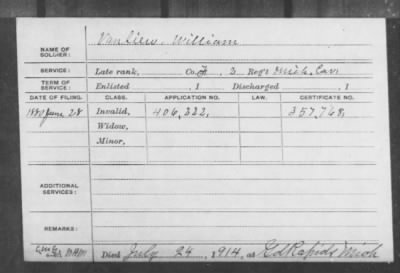 Van Liew, William
NAME OF
SOLDIER:
SERVICE: Late rank, Co. 3 Reg't Mich. Cav.
TERM OF
SERVICE: Enlisted , 1 Discharged , 1
DATE OF FILING. CLASS. APPLICATION NO. LAW. CERTIFICATE NO.
1880 June 28 Invalid, 406,222, 357,768,
Widow,
Minor,
ADDITIONAL
SERVICES:
REMARKS:
Died July 24, 1914, at Gd Rapids Mich